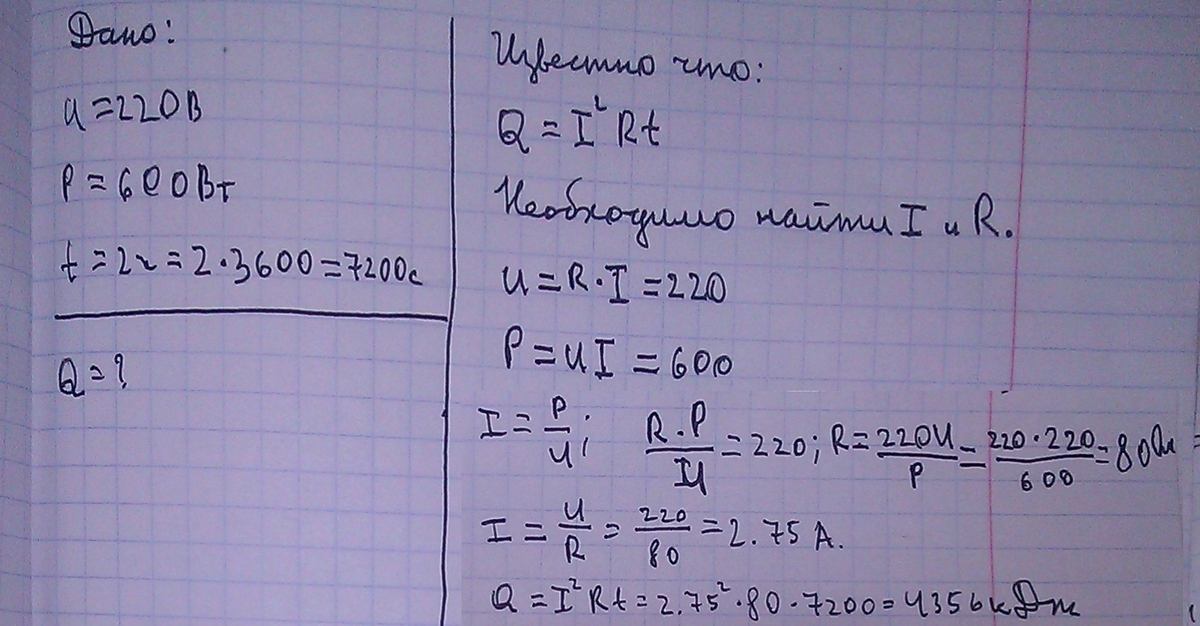 Дано:
U = 220В
P = 600Вт
t = 2ч = 2·3600 = 7200с
Q = ?
Известно что:
Q = I² Rt
Необходимо найти I и R.
U = R·I = 220
P = UI = 600
I = P/U; R·P/U = 220; R = 220U/P = 220·220/600 = 80Ом =
I = U/R = 220/80 = 2.75 А.
Q = I² Rt = 2.75²·80·7200 = 4356кДж